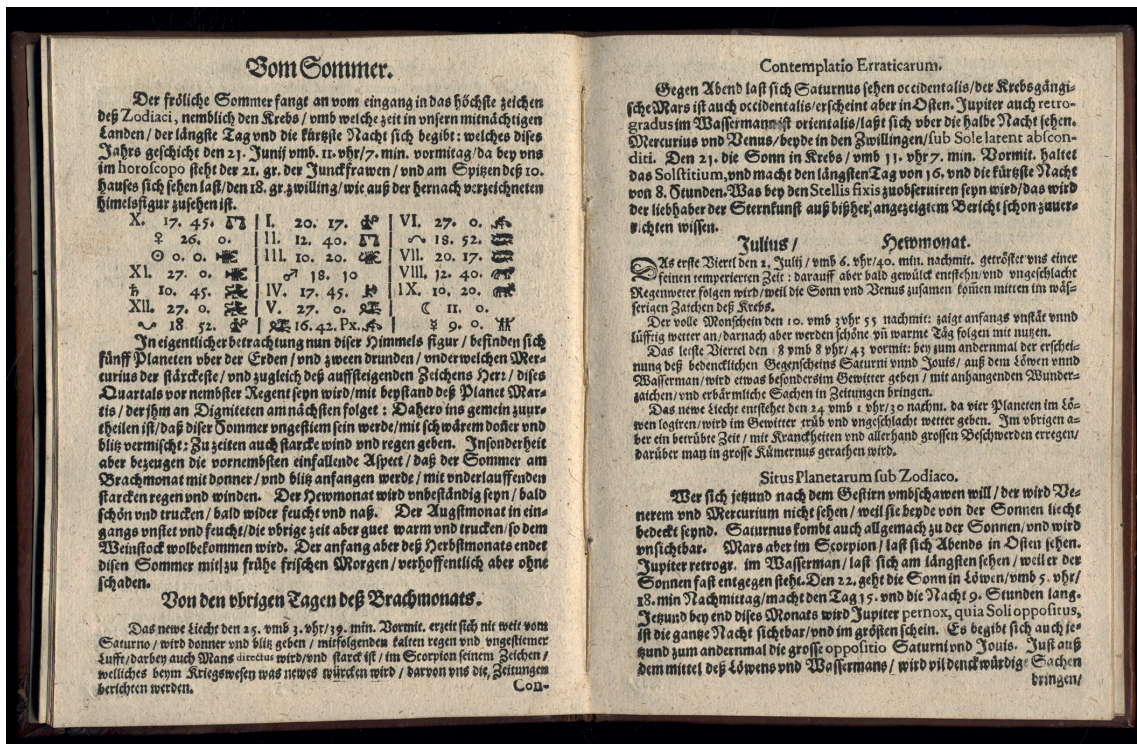 Vom Sommer.
Der fröliche Sommer fangt an vom eingang in das höchste zeichen
deß Zodiaci, nemblich den Krebs / vmb welche zeit in vnsern mitnächtigen
Landen / der längste Tag vnd die kürtzste Nacht sich begibt: welches dises
Jahrs geschicht den 21. Junij vmb. 11. vhr/7. min. vormitag/da bey vns
im horoscopo steht der 21. gr. der Junckfrawen / vnd am Spitzen deß 10.
hauses sich sehen last/den 18. gr. zwilling/wie auß der hernach verzeichneten
himelsfigur zusehen ist.
X. 17. 45. ♎ | I. 20. 17. | VI. 27. 0.
♀ 26. 0. | II. 12. 40. ♎ | 18. 52.
☉ 0. 0. | III. 10. 20. | VII. 20. 17.
XI. 27. 0. | ♂ 18. 10 | VIII. 12. 40.
♄ 10. 45. | IV. 17. 45. | IX. 10. 20.
XII. 27. 0. | V. 27. 0. | ☾ 11. 0.
18 52. | 16. 42. Px.. | ☿ 9. 0.
In eigentlicher betrachtung nun diser Himmels figur / befinden sich
fünff Planeten vber der Erden / vnd zween drunden / vnder welchen Mer-
curius der stärckeste / vnd zugleich deß auffsteigenden Zeichens Herr / dises
Quartals vor nembster Regent seyn wird/mit beystand deß Planet Mar-
tis / der jhm an Digniteten am nächsten folget : Dahero ins gemein zuur-
theilen ist/daß diser Sommer vngestiem sein werde/mit schwärem doñer vnd
blitz vermischt: Zu zeiten auch starcke wind vnd regen geben. Insonderheit
aber bezeugen die vornembsten einfallende Aspect / daß der Sommer am
Brachmonat mit donner / vnd blitz anfangen werde / mit vnderlauffenden
starcken regen vnd winden. Der Hewmonat wird vnbeständig seyn / bald
schön vnd trucken / bald wider feucht vnd naß. Der Augstmonat in ein-
gangs vnstet vnd feucht/die vbrige zeit aber guet warm vnd trucken/so dem
Weinstock wolbekommen wird. Der anfang aber deß Herbstmonats endet
disen Sommer mit/zu frühe frischen Morgen / verhoffentlich aber ohne
schaden.
Von den vbrigen Tagen deß Brachmonats.
Das newe Liecht den 25. vmb 3. vhr/39. min. Vormit. erzeit sich nit weit vom
Saturno / wird donner vnd blitz geben / mitfolgenden kalten regen vnd vngestiemer
Lufft/darbey auch Mans directus wird/vnd starck ist / im Scorpion seinem Zeichen /
welliches beym Kriegswesen was newes würcken wird / darvon vns die, Zeitungen
berichten werden.
Con-
Contemplatio Erraticarum.
Gegen Abend last sich Saturnus sehen occidentalis/der Krebsgängi-
sche Mars ist auch occidentalis/erscheint aber in Osten. Jupiter auch retro-
gradus im Wassermann ist orientalis/laßt sich vber die halbe Nacht sehen.
Mercurius vnd Venus / beyde in den Zwillingen/sub Sole latent abscon-
diti. Den 21. die Sonn in Krebs / vmb 11. vhr 7. min. Vormit. haltet
das Solstitium, vnd macht den längsten Tag von 16. vnd die kürtzste Nacht
von 8. Stunden. Was bey den Stellis fixis zuobseruiren seyn wird/das wird
der liebhaber der Sternkunst auß bißher, angezeigtem Bericht schon zuuer-
richten wissen.
Julius / Hewmonat.
DAs erste Viertl den 2. Julij / vmb 6. vhr/40. min. nachmit. getröstet vns einer
feinen temperierten Zeit : darauff aber bald gewülck entstehn/vnd vngeschlacht
Regenweter folgen wird/weil die Sonn vnd Venus zusamen kom̃en mitten im wäs-
serigen Zaichen deß Krebs.
Der volle Monschein den 10. vmb 3 vhr 55 nachmit: zaigt anfangs vnstät vnnd
lüfftig wetter an/darnach aber werden schöne vñ warme Täg folgen mit nutzen.
Das letste Viertel den 18 vmb 8 vhr/ 43 vormit: bey zum andernmal der erschei-
nung deß bedencklichen Gegenscheins Saturni vnnd Jouis / auß dem Löwen vnnd
Wasserman/wird etwas besonders im Gewitter geben / mit anhangenden Wunder-
zaichen/vnd erbärmliche Sachen in Zeitungen bringen.
Das newe Liecht entstehet den 24 vmb 1 vhr/30 nachm. da vier Planeten im Lö-
wen logiren/wird im Gewitter trüb vnd vngeschlacht wetter geben. Im vbrigen a-
ber ein betrübte Zeit / mit Kranckheiten vnd allerhand grossen Beschwerden erregen/
darüber man in grosse Kümernus gerathen wird.
Situs Planetarum sub Zodiaco.
Wer sich jetzund nach dem Gestirn vmbschawen will / der wird Ve-
nerem vnd Mercurium nicht sehen / weil sie beyde von der Sonnen liecht
bedeckt seynd. Saturnus kombt auch allgemach zu der Sonnen/vnd wird
vnsichtbar. Mars aber im Scorpion / last sich Abends in Osten sehen.
Jupiter retrogr. im Wasserman / last sich am längsten sehen / weil er der
Sonnen fast entgegen steht. Den 22. geht die Sonn in Löwen/vmb 5. vhr/
18. min Nachmittag/macht den Tag 15. vnd die Nacht 9. Stunden lang.
Jetzund bey end dises Monats wird Jupiter pernox, quia Soli oppositus,
ist die gantze Nacht sichtbar/vnd im grösten schein. Es begibt sich auch je-
tzund zum andernmal die grosse oppositio Saturni vnd Jouis. Just auß
dem mittel deß Löwens vnd Wassermans / wird vil denckwürdige Sachen
bringen/